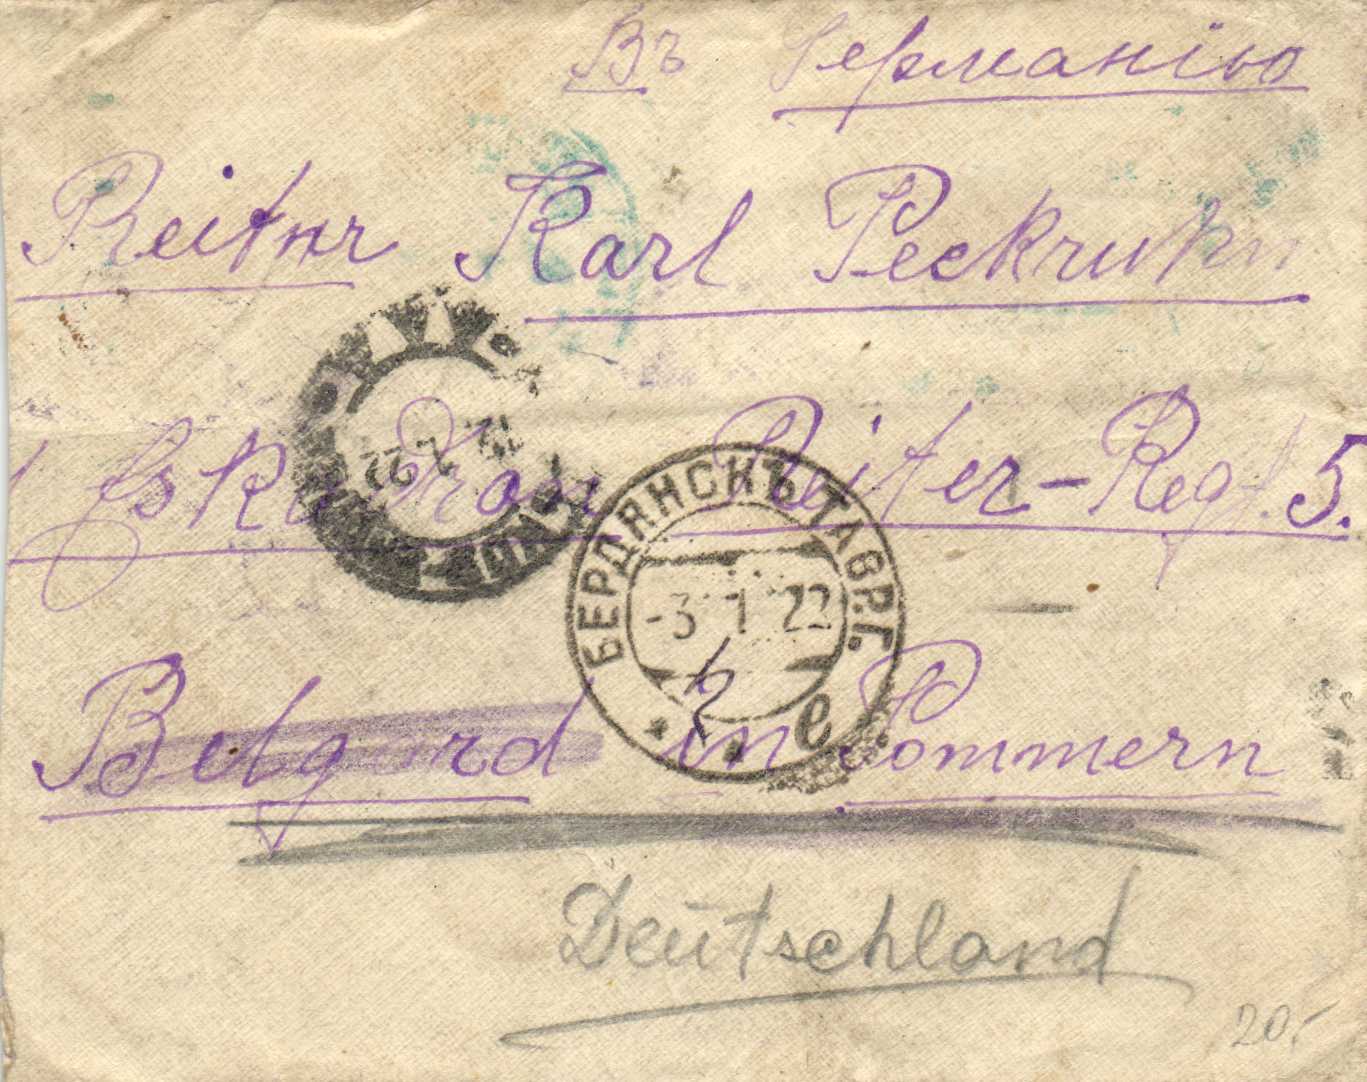 Въ Германію
Reiter Karl Peckruhn
Eskadron Reiter-Regt. 5.
12 1 22
БЕРДЯНСКЪ ТАВР.Г.
-3 1 22
е
Belgard in Pommern
Deutschland
20.-